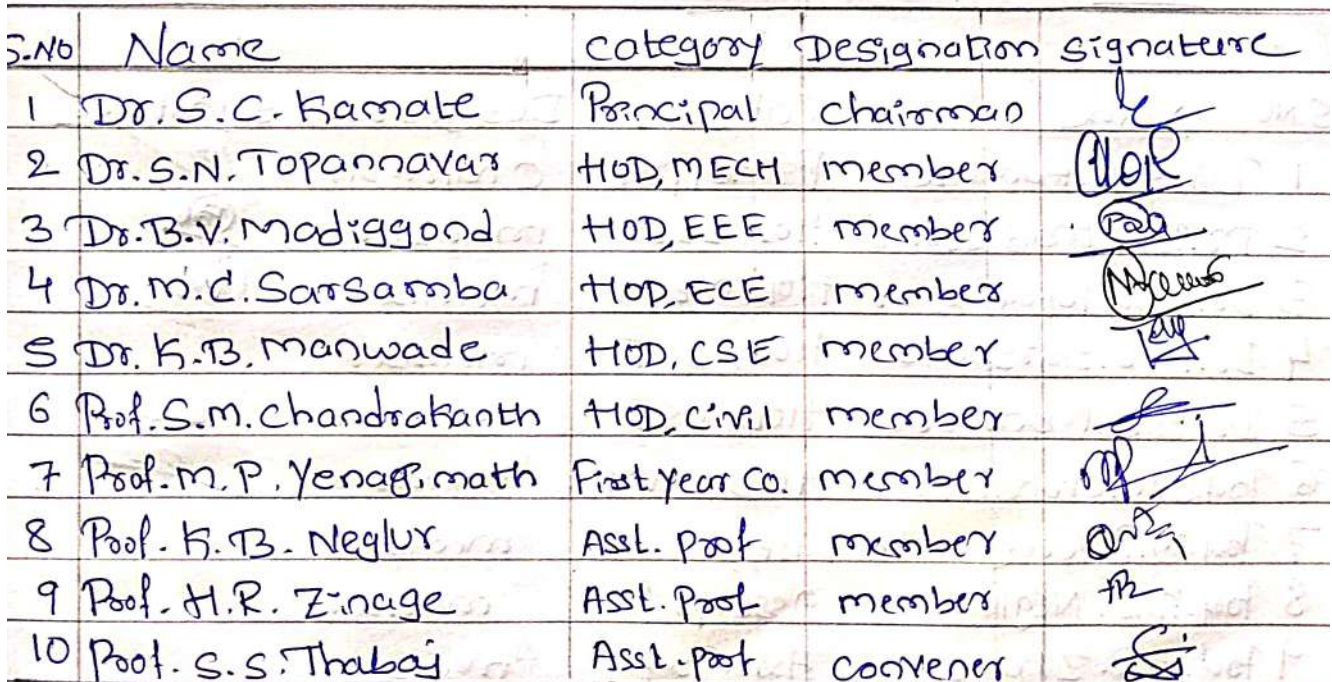 S.No Name Category Designation signature
1 Dr. S. C. Kamate Principal chairman
2 Dr. S.N. Topannavar HOD, MECH member
3 Dr. B.V. Madiggond HOD, EEE member
4 Dr. M.C. Sarsamba HOD, ECE member
5 Dr. K.B. Manwade HOD, CSE member
6 Prof. S.M. Chandrakanth HOD, Civil member
7 Prof. M. P. Yenagimath First Year Co. member
8 Prof. K. B. Neglur Asst. Prof member
9 Prof. H.R. Zinage Asst. Prof member
10 Prof. S. S. Thabaj Asst. prof. convener